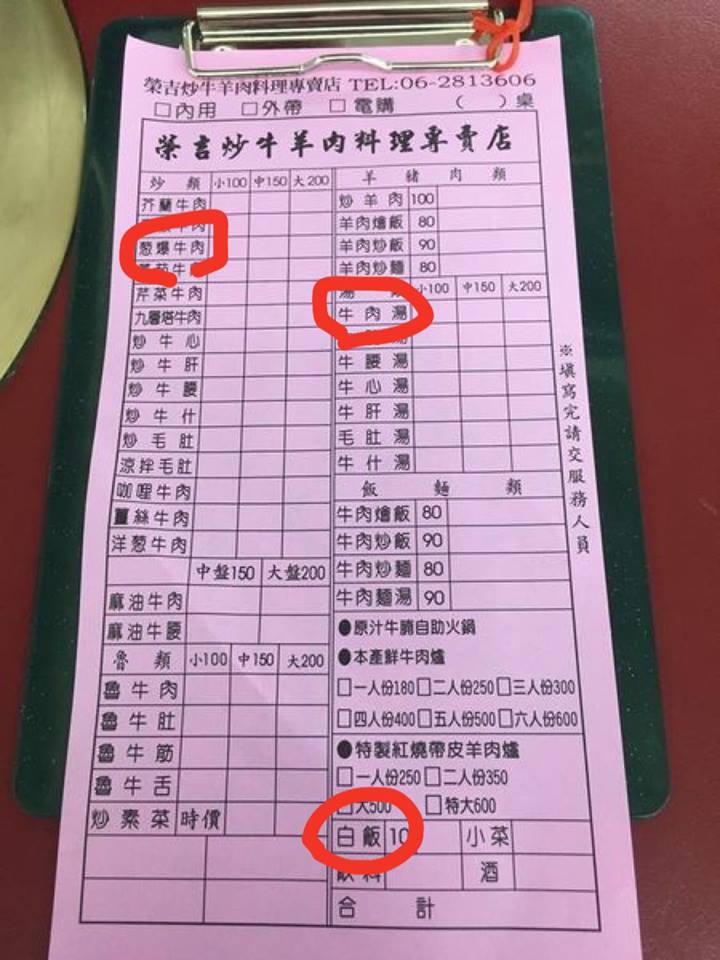 榮吉炒牛羊肉料理專賣店 TEL:06-2813606
□內用 □外帶 □電購 ( )桌
榮吉炒牛羊肉料理專賣店
炒類 小100 中150 大200
芥蘭牛肉
葱爆牛肉
芹菜牛肉
九層塔牛肉
炒牛心
炒牛肝
炒牛腰
炒牛什
炒毛肚
涼拌毛肚
咖哩牛肉
薑絲牛肉
洋葱牛肉
中盤150 大盤200
麻油牛肉
麻油牛腰
魯類 小100 中150 大200
魯牛肉
魯牛肚
魯牛筋
魯牛舌
炒素菜 時價
羊豬肉類
炒羊肉 100
羊肉燴飯 80
羊肉炒飯 90
羊肉炒麵 80
小100 中150 大200
牛肉湯
牛腰湯
牛心湯
牛肝湯
毛肚湯
牛什湯
飯麵類
牛肉燴飯 80
牛肉炒飯 90
牛肉炒麵 80
牛肉麵湯 90
●原汁牛腩自助火鍋
●本產鮮牛肉爐
□一人份180□二人份250□三人份300
□四人份400□五人份500□六人份600
●特製紅燒帶皮羊肉爐
□一人份250□二人份350
□大500 □特大600
白飯 10 小菜
飲料 酒
合計
※填寫完請交服務人員